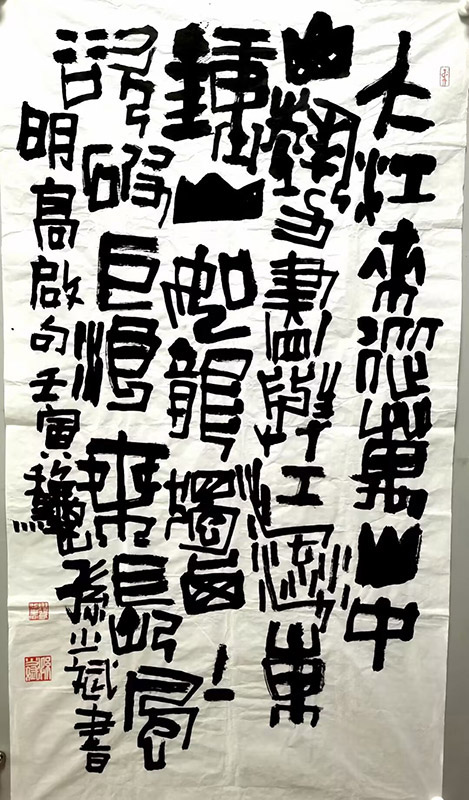 大江來從萬山中
山勢盡與江流東
鍾山如龍獨西上
欲破巨浪乘長風
明高啟句壬寅龝孫斌書